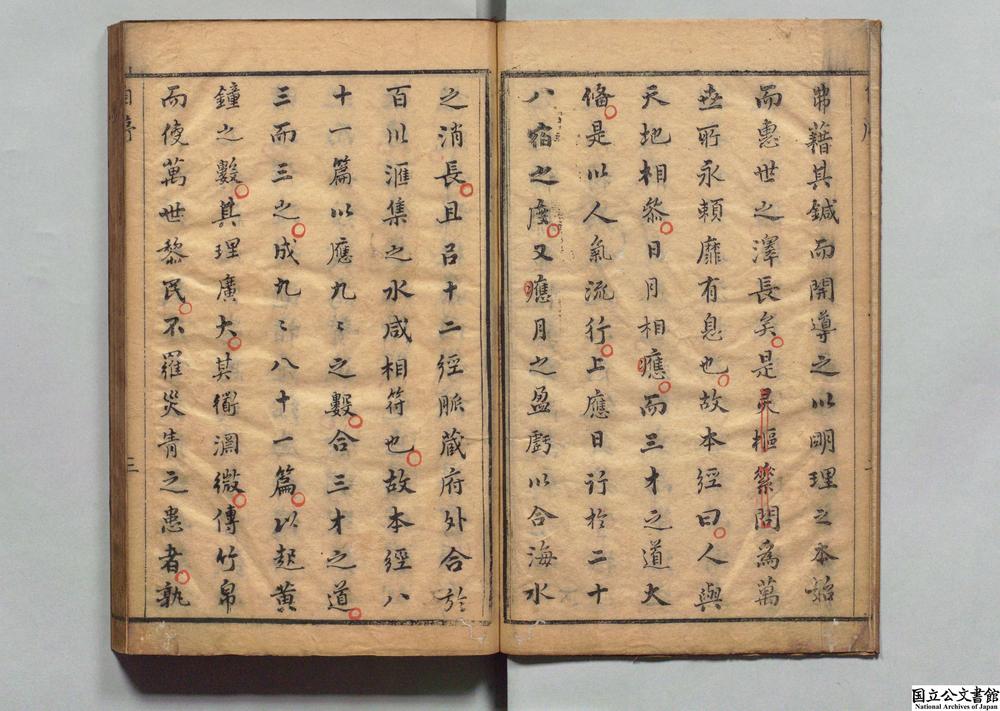 弗藉其鍼而開導之以明理之本始
而惠世之澤長矣是灵樞素問為萬
世所永賴靡有息也故本經曰人與
天地相叅日月相應而三才之道大
俻是以人氣流行上應日行於二十
八宿之度又應月之盈虧以合海水
之消長且吕十二經脈蔵府外合於
百川滙集之水咸相符也故本經八
十一篇以應九〻之數合三才之道
三而三之成九〻八十一篇以起黄
鐘之數其理廣大其衜淵微傳竹帛
而使萬世黎民不羅災眚之患者孰
自序
三
国立公文書館
National Archives of Japan